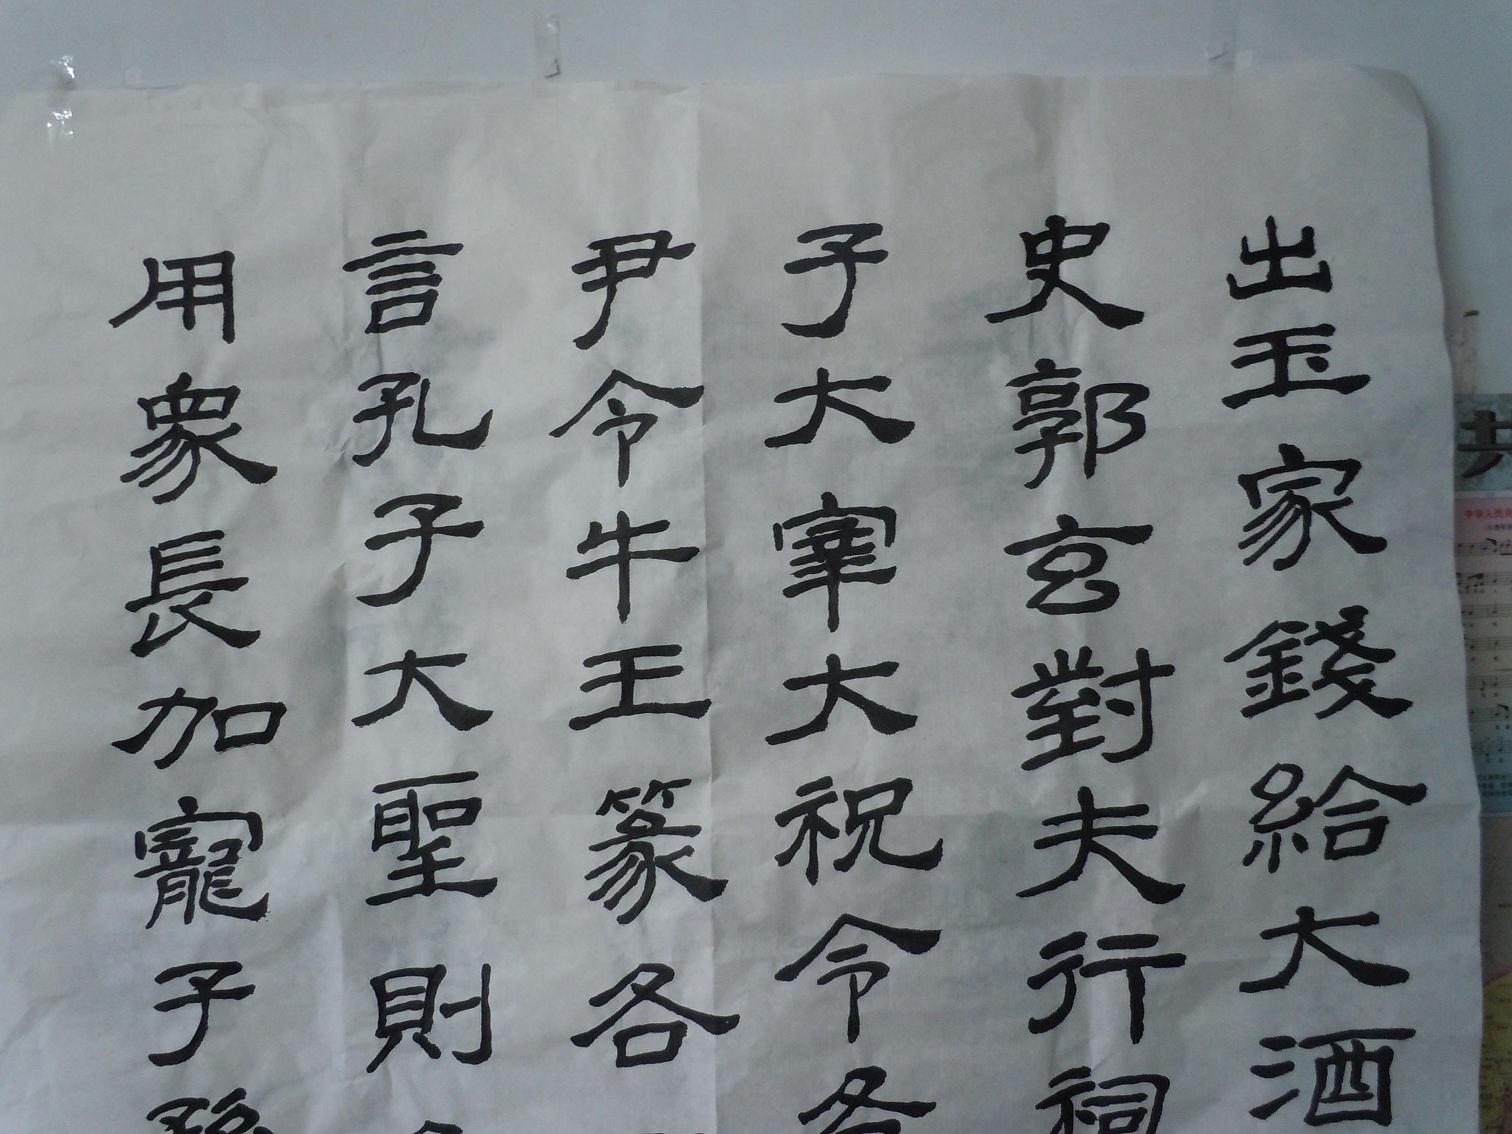 出玉家錢給大酒
史郭玄對夫行祠
子大宰大祝令各
尹令牛王篆各
言孔子大聖則
用衆長加寵子孫